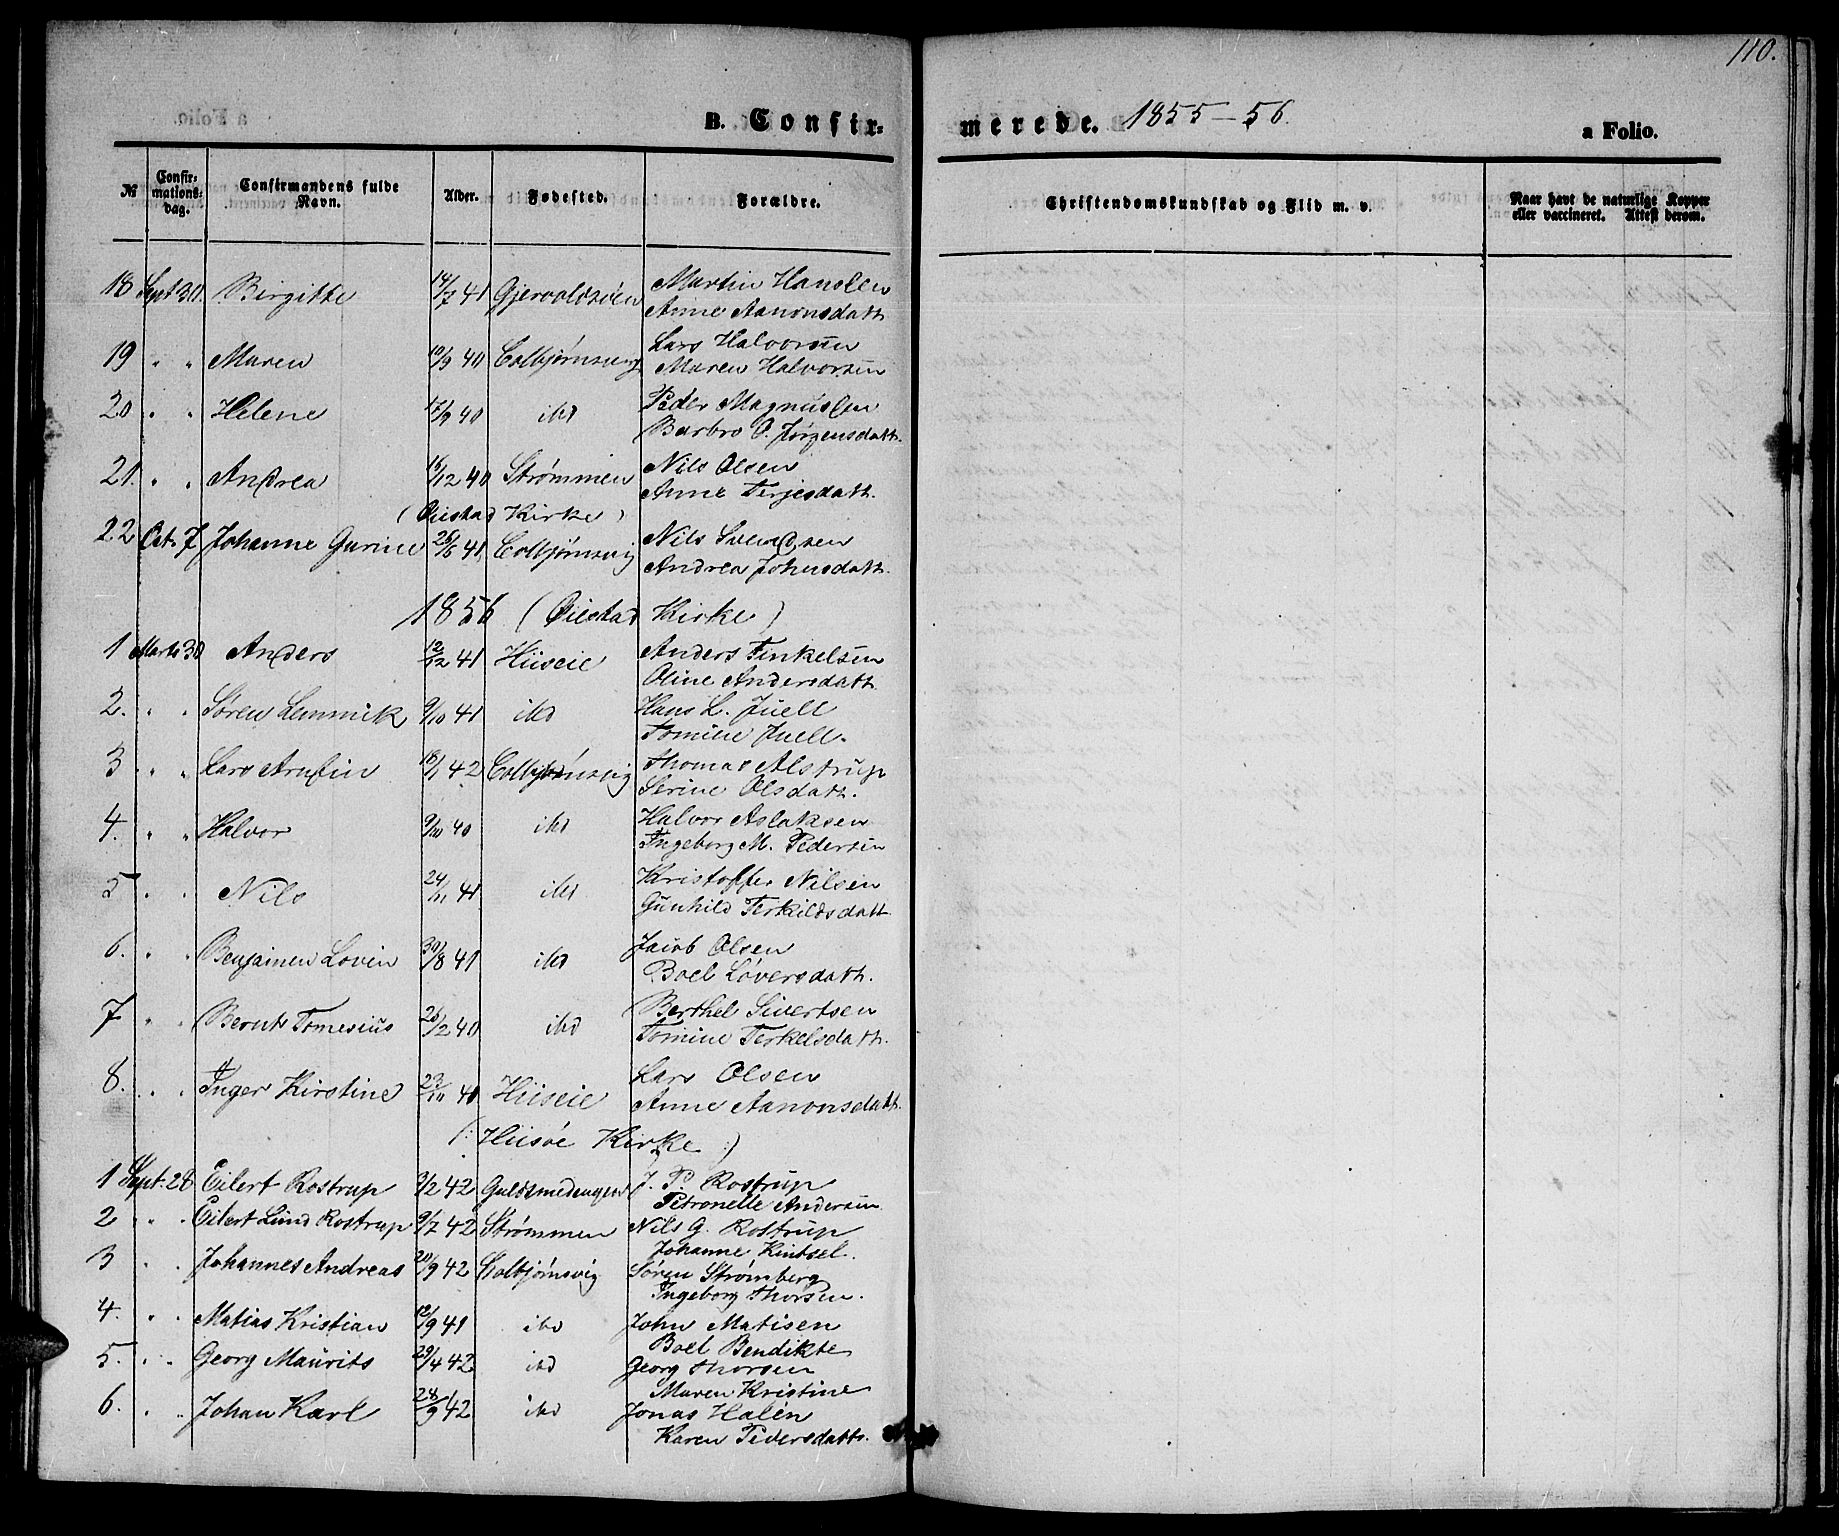 110.
B. Confir- merede. 1855-56.
a Folio.
№ Confirmations-dag. Confirmandens fulde Navn. Alder. Fødested. Forældre. Christendomskundskab og Flid m. v. Naar havt de naturlige Kopper eller vaccineret. Attest derom.
18 Sept 30. Birgitte 14/7 41 Gjervoldsøen Martin Hansen
Anne Aanonsdatt.
19 " " Maren 10/9 40 Colbjørnsvig Lars Halvorsen
Maren Halvorsen
20 " " Helene 17/9 40 ibd Peder Magnussen
Barbro O. Jørgensdatt.
21. " " Andrea 16/12 40 Strømmen Nils Olsen
Anne Terjesdatt.
(Øiestad Kirke)
22 Oct. 7 Johanne Gurine 26/6 41 Colbjørnsvig Nils Svendsen
Andrea Johnsdatt.
1856 (Øiestad Kirke)
1 Marts 30 Anders 12/12 41 Hiiseie Anders Finkelsen
Oline Andersdatt.
2. " " Søren Lemmick 9/10 41 ibd Hans L. Juell
Tomine Juell.
3 " " Lars Arnfin 18/1 42 Colbjørnsvig Thomas Alstrup
Serine Olsdatt.
4. " " Halvor 9/10 40 ibd Halvor Aslaksen
Ingeborg M. Pedersen
5 " " Nils 24/11 41 ibd Kristoffer Nilsen
Gunhild Terkildsdatt.
6. " " Benjamen Lovin 30/8 41 ibd Jacob Olsen
Boel Løversdatt.
7 " " Bernt Tomesius 26/2 40 ibd Berthel Sivertsen
Tomine Terkelsdatt.
8. " " Inger Kirstine 23/10 40 Hiiseie Lars Olsen
Anne Aanonsdatt.
(: Hiisøe Kirke :)
1 Sept. 28 Eilert Rostrup 3/2 42 Guldsmedengen J. P. Rostrup
Petronelle Andersen
2 " " Eilert Lund Rostrup 9/7 42 Strømmen Nils G. Rostrup
Johanne Kintsel.
3 " " Johannes Andreas 20/9 42 Kolbjørnsvig Søren Strømberg
Ingeborg Thorsen.
4. " " Matias Kristian 12/9 41 ibd John Matisen
Boel Bendikte
5. " " Georg Maurits 29/4 42 ibd Georg Thorsen
Maren Kristine
6. " " Johan Karl 28/9 42 ibd Jonas Halen
Karen Pedersdatt.